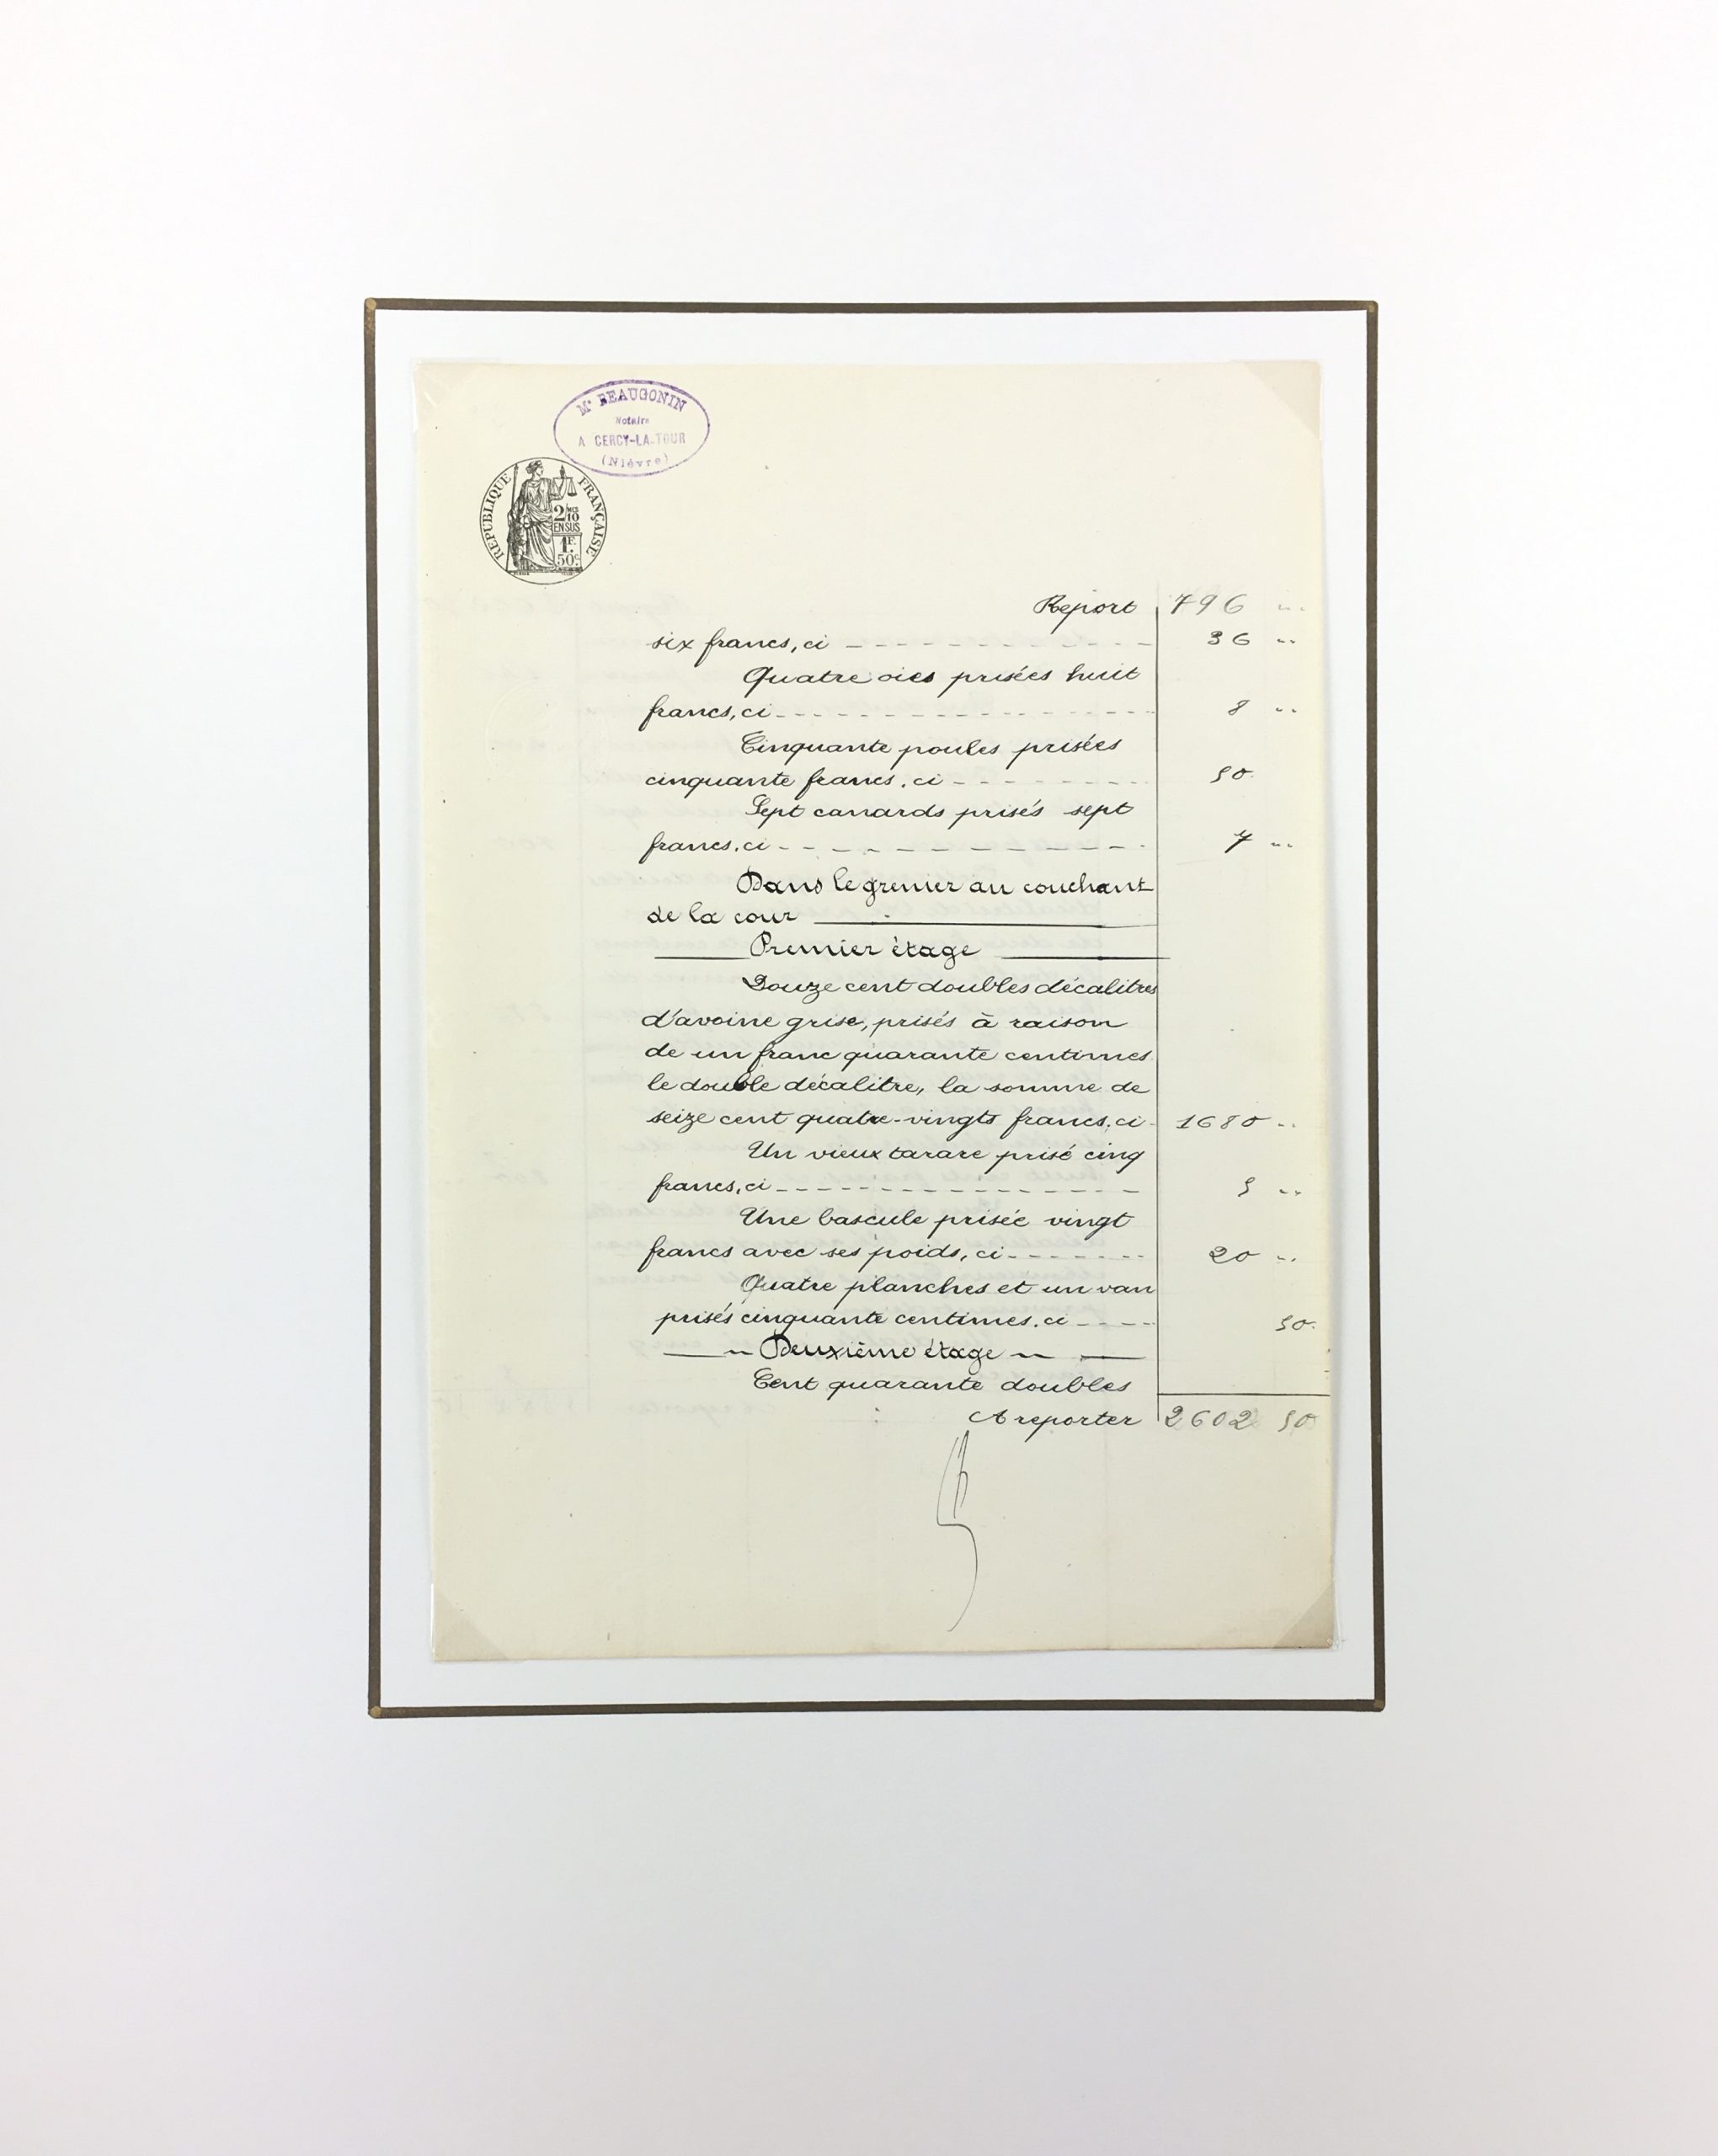 Me BEAUGONIN
Notaire
A CERCY-LA-TOUR
(Nièvre)
REPUBLIQUE FRANÇAISE
2 MES 10
EN SUS
1F.
50c
Report 796 "
six francs, ci 36 "
Quatre oies prisées huit
francs, ci 8 "
Cinquante poules prisées
cinquante francs. ci 50
Sept canards prisés sept
francs. ci 7 "
Dans le grenier au couchant
de la cour
Premier étage
Douze cent doubles décalitres
d'avoine grise, prisés à raison
de un franc quarante centimes
le double décalitre, la somme de
seize cent quatre-vingts francs. ci 1680 "
Un vieux tarare prisé cinq
francs, ci 5 "
Une bascule prisée vingt
francs avec ses poids, ci 20 "
Quatre planches et un van
prisés cinquante centimes. ci 50
Deuxième étage
Cent quarante doubles
A reporter 2602 50